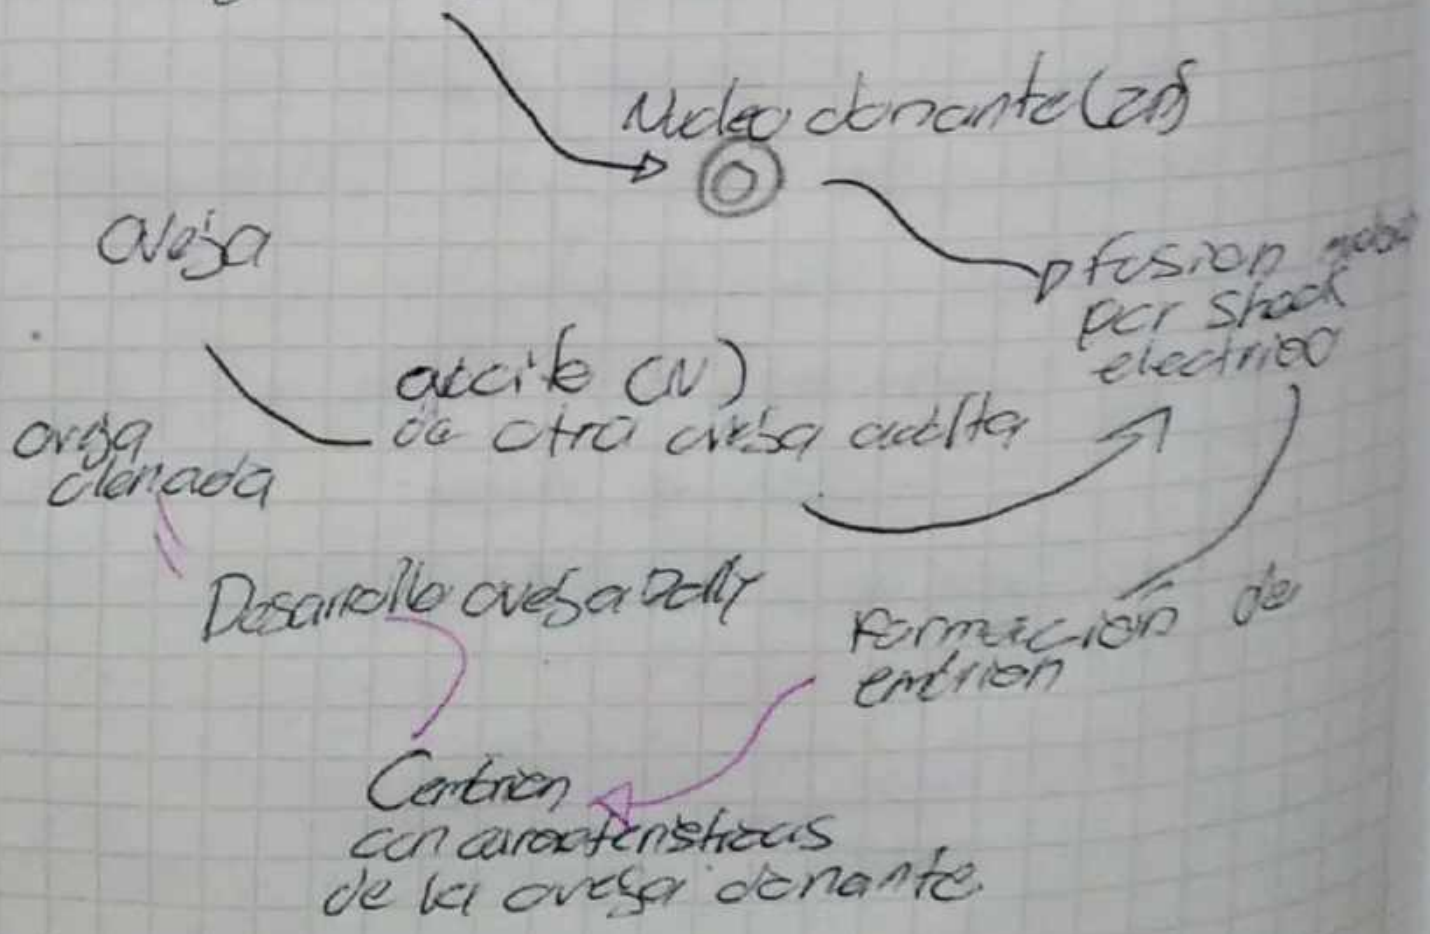 Nucleo donante (2n)
oveja
fusion
por shock
electrico
ovocito (N)
de otra oveja adulta
oveja
clonada
Desarrollo oveja Dolly
Formación de
embrion
Cembrion
con caracteristicas
de la oveja donante.